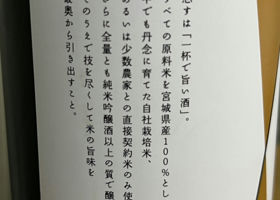 志すは「一杯で旨い酒」。
すべての原料米を宮城県産100%とし
中でも丹念に育てた自社栽培米、
あるいは少数農家との直接契約米のみ使
さらに全量とも純米吟醸酒以上の質で醸
そのうえで技を尽くして米の旨味を
最奥から引き出すこと。